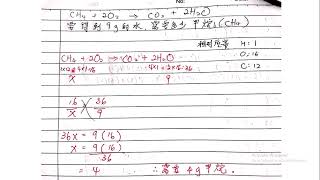 No.
CH₄ + 2O₂ → CO₂ + 2H₂O
需得到 9g 的水, 需要多少甲烷 (CH₄)
相對原子質量 H: 1
O: 16
C: 12
CH₄ + 2O₂ → CO₂ + 2H₂O
x 9
16 36
x 9
36x = 9(16)
x = 9(16)
36
= 4 ∴ 需要 4g 甲烷.